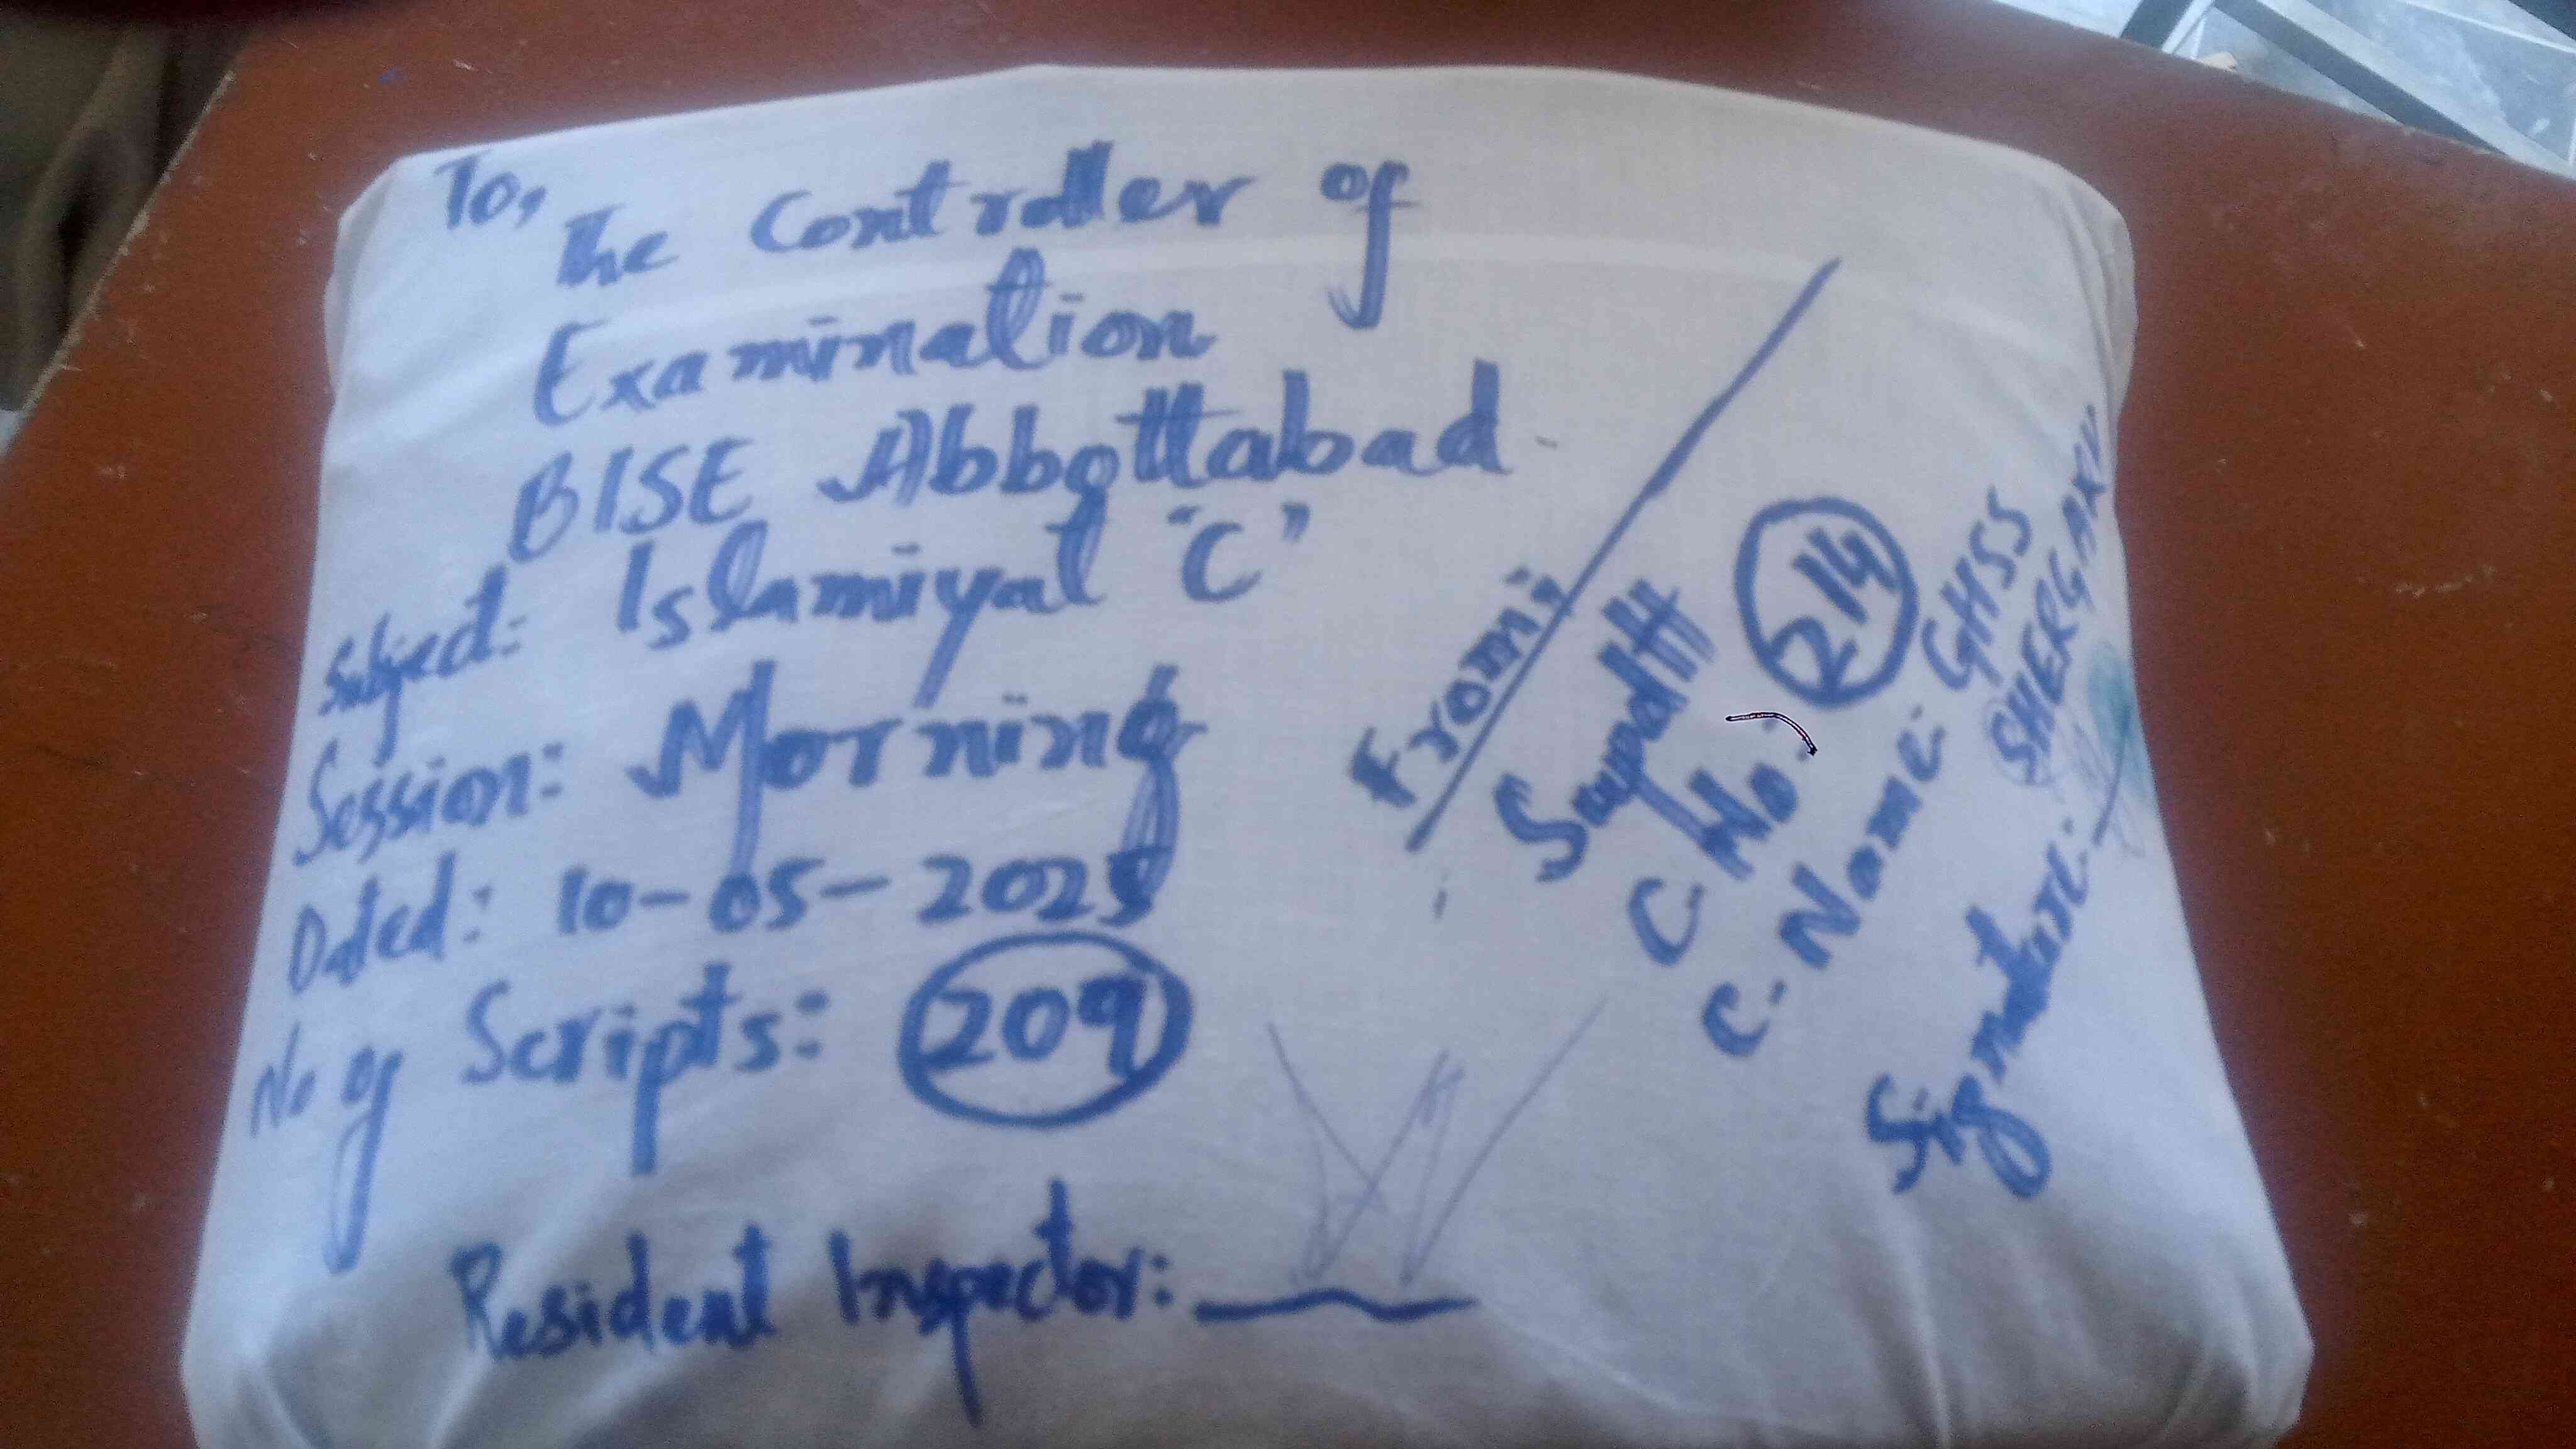 To,
The Controller of
Examination
BISE Abbottabad
Subject: Islamiyat "C"
Session: Morning
Dated: 10-05-2025
No of Scripts: 209
Resident Inspector:
From:
Supdtt
C No: 214
C. Name: GHSS
SHERGARH
Signature: